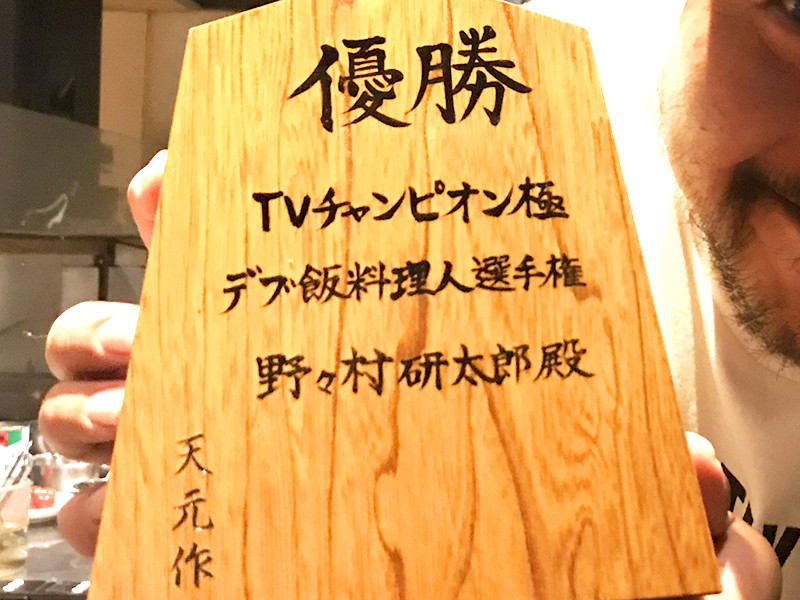 優勝
TVチャンピオン極
デブ飯料理人選手権
野々村研太郎殿
天元作